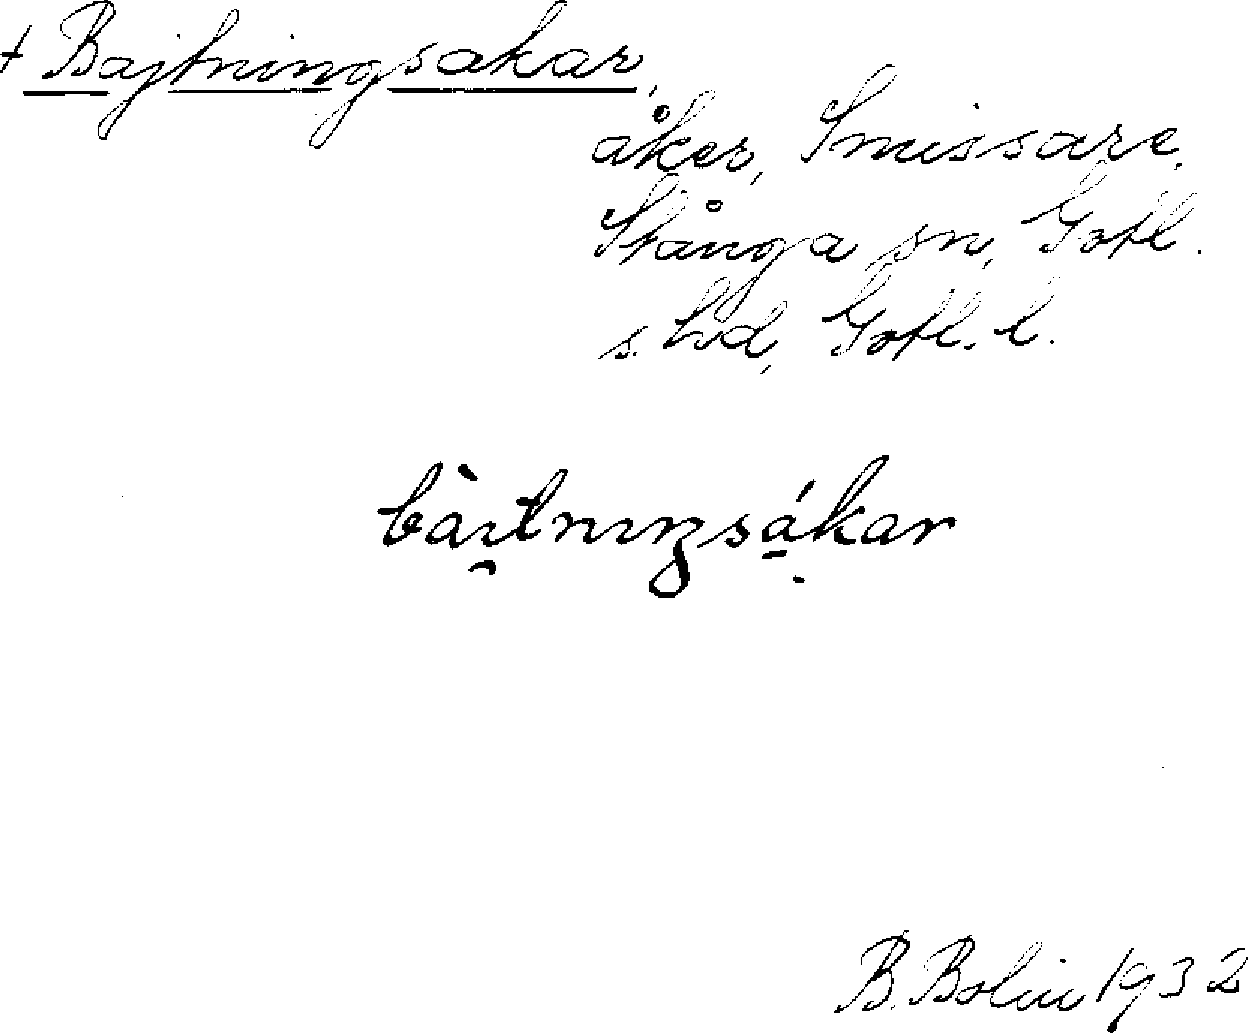 + Bajtningsakar,
åker, Smissare,
Stånga sn, Gotl.
s. hd, Gotl. l.
bàı̯tnıŋsá̱kar
B. Bolin 1932